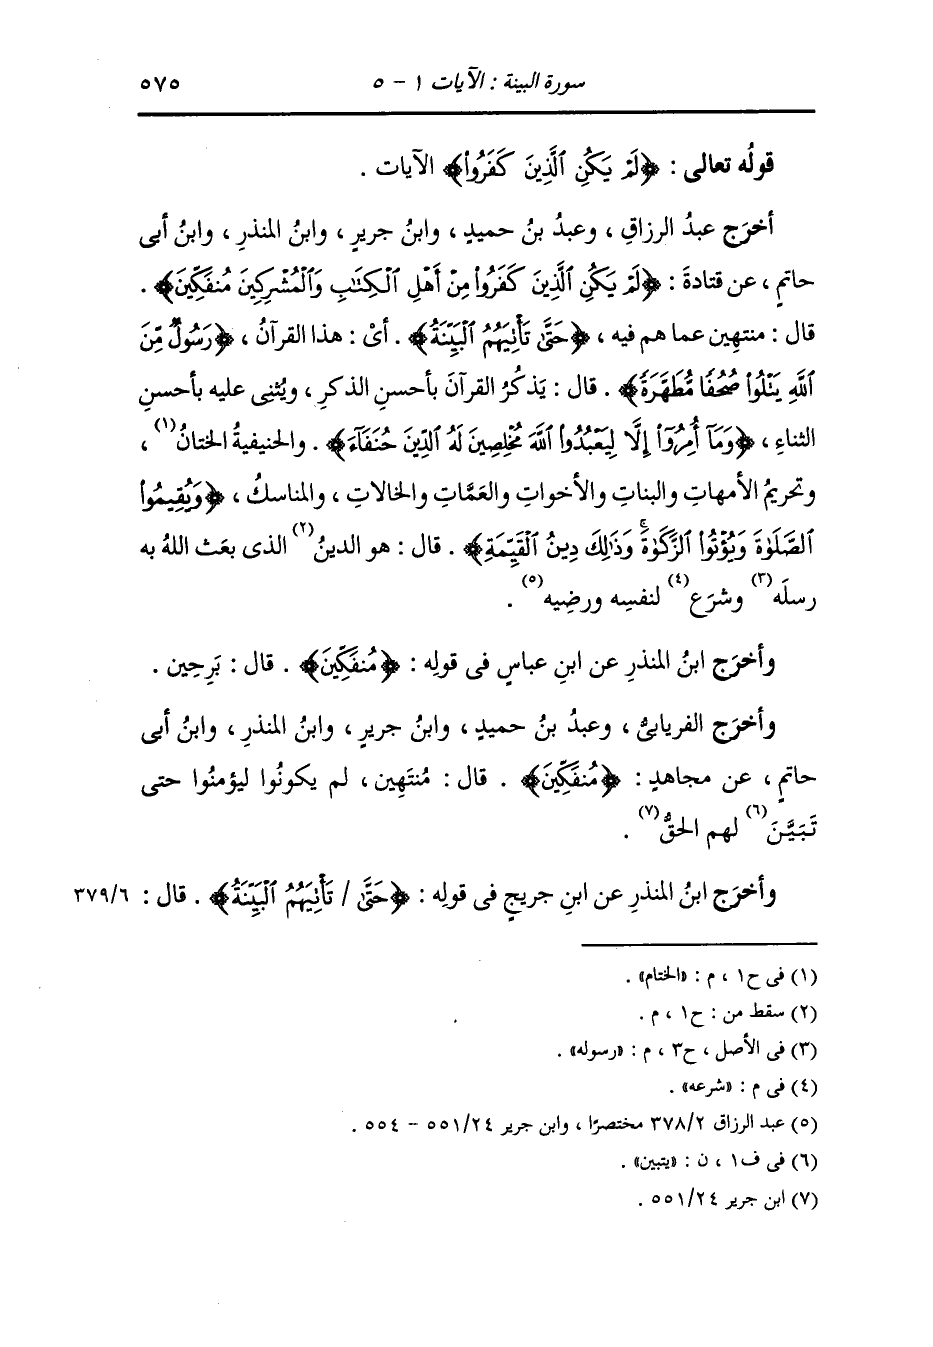 سورة البينة : الآيات ١ - ٥
٥٧٥
قولُه تعالى : ﴿لَمْ يَكُنِ ٱلَّذِينَ كَفَرُوا۟﴾ الآيات .
أخرَج عبدُ الرزاقِ ، وعبدُ بنُ حميدٍ ، وابنُ جريرٍ ، وابنُ المنذرِ ، وابنُ أبى
حاتمٍ ، عن قتادةَ : ﴿لَمْ يَكُنِ ٱلَّذِينَ كَفَرُوا۟ مِنْ أَهْلِ ٱلْكِتَـٰبِ وَٱلْمُشْرِكِينَ مُنفَكِّينَ﴾ .
قال : منتهِين عما هم فيه ، ﴿حَتَّىٰ تَأْتِيَهُمُ ٱلْبَيِّنَةُ﴾ . أىْ : هذا القرآنُ ، ﴿رَسُولٌ مِّنَ
ٱللَّهِ يَتْلُوا۟ صُحُفًا مُّطَهَّرَةً﴾ . قال : يَذكُرُ القرآنَ بأحسنِ الذكرِ ، ويُثنِى عليه بأحسنِ
الثناءِ ، ﴿وَمَآ أُمِرُوٓا۟ إِلَّا لِيَعْبُدُوا۟ ٱللَّهَ مُخْلِصِينَ لَهُ ٱلدِّينَ حُنَفَآءَ﴾ . والحنيفيةُ الختانُ(١) ،
وتحريمُ الأمهاتِ والبناتِ والأخواتِ والعَمَّاتِ والخالاتِ ، والمناسكُ ، ﴿وَيُقِيمُوا۟
ٱلصَّلَوٰةَ وَيُؤْتُوا۟ ٱلزَّكَوٰةَ ۚ وَذَٰلِكَ دِينُ ٱلْقَيِّمَةِ﴾ . قال : هو الدينُ(٢) الذى بعَث اللهُ به
رسلَه(٣) وشرَع(٤) لنفسِه ورضِيه(٥) .
وأخرَج ابنُ المنذرِ عن ابنِ عباسٍ فى قولِه : ﴿مُنفَكِّينَ﴾ . قال : بَرِحِين .
وأخرَج الفريابىُّ ، وعبدُ بنُ حميدٍ ، وابنُ جريرٍ ، وابنُ المنذرِ ، وابنُ أبى
حاتمٍ ، عن مجاهدٍ : ﴿مُنفَكِّينَ﴾ . قال : مُنتَهِين ، لم يكونُوا ليؤمنُوا حتى
تَبَيَّنَ(٦) لهم الحقُّ(٧) .
وأخرَج ابنُ المنذرِ عن ابنِ جريجٍ فى قولِه : ﴿حَتَّىٰ / تَأْتِيَهُمُ ٱلْبَيِّنَةُ﴾ . قال : ٣٧٩/٦
(١) فى ح١ ، م : «الختام» .
(٢) سقط من : ح١ ، م .
(٣) فى الأصل ، ح٣ ، م : «رسوله» .
(٤) فى م : «شرعه» .
(٥) عبد الرزاق ٣٧٨/٢ مختصرًا ، وابن جرير ٥٥١/٢٤ - ٥٥٤ .
(٦) فى ف١ ، ن : «يتبين» .
(٧) ابن جرير ٥٥١/٢٤ .